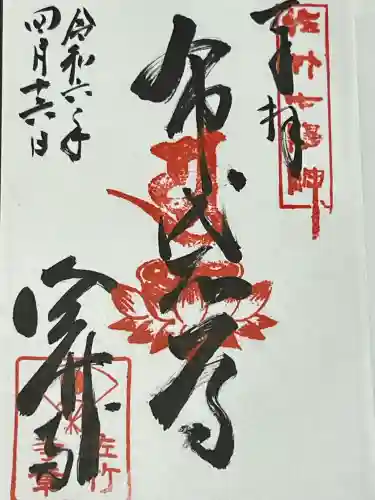 奉拝
佐竹七福神
布袋尊
令和六年
四月十六日
佐竹寺
佐竹
寺章